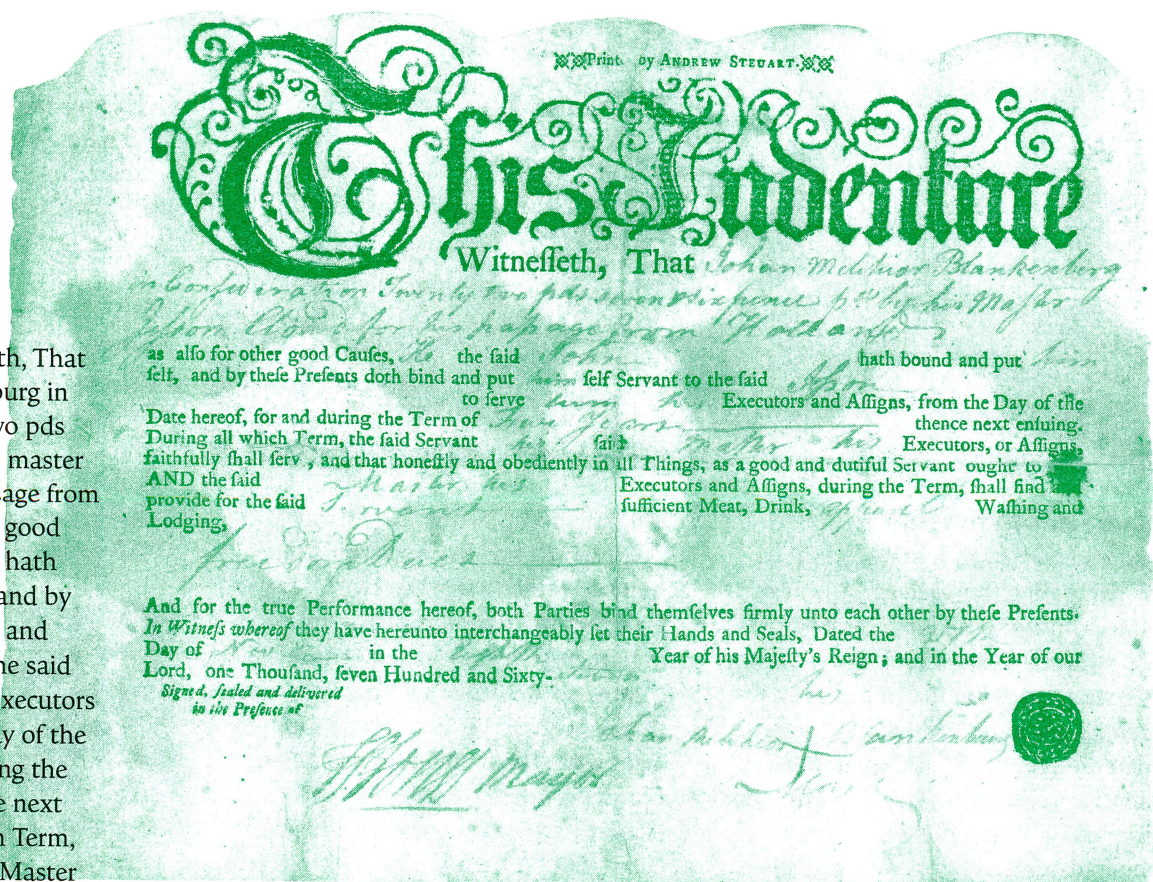 Print. by ANDREW STEUART.
This Indenture
Witneſſeth, That Johan Melchior Blankenburg
in Conſideration Twenty two pds seven & sixpence pd by his Maſter
for his paſsage from Holland
as alſo for other good Cauſes, He the ſaid John hath bound and put him
ſelf, and by theſe Preſents doth bind and put him ſelf Servant to the ſaid
to ſerve him his Executors and Aſſigns, from the Day of the
Date hereof, for and during the Term of Years thence next enſuing.
During all which Term, the ſaid Servant his ſaid maſter his Executors, or Aſſigns,
faithfully ſhall ſerv , and that honeſtly and obediently in all Things, as a good and dutiful Servant ought to
AND the ſaid Maſter his Executors and Aſſigns, during the Term, ſhall find and
provide for the ſaid Servant ſufficient Meat, Drink, aparel Waſhing and
Lodging,
And for the true Performance hereof, both Parties bind themſelves firmly unto each other by theſe Preſents.
In Witneſs whereof they have hereunto interchangeably ſet their Hands and Seals, Dated the
Day of in the Year of his Majeſty's Reign; and in the Year of our
Lord, one Thouſand, ſeven Hundred and Sixty-
Signed, ſealed and delivered
in the Preſence of
his
Johan Melchior Blankenburg
Mayor
th, That
burg in
vo pds
master
sage from
good
hath
and by
and
he said
xecutors
y of the
ng the
e next
n Term,
Master